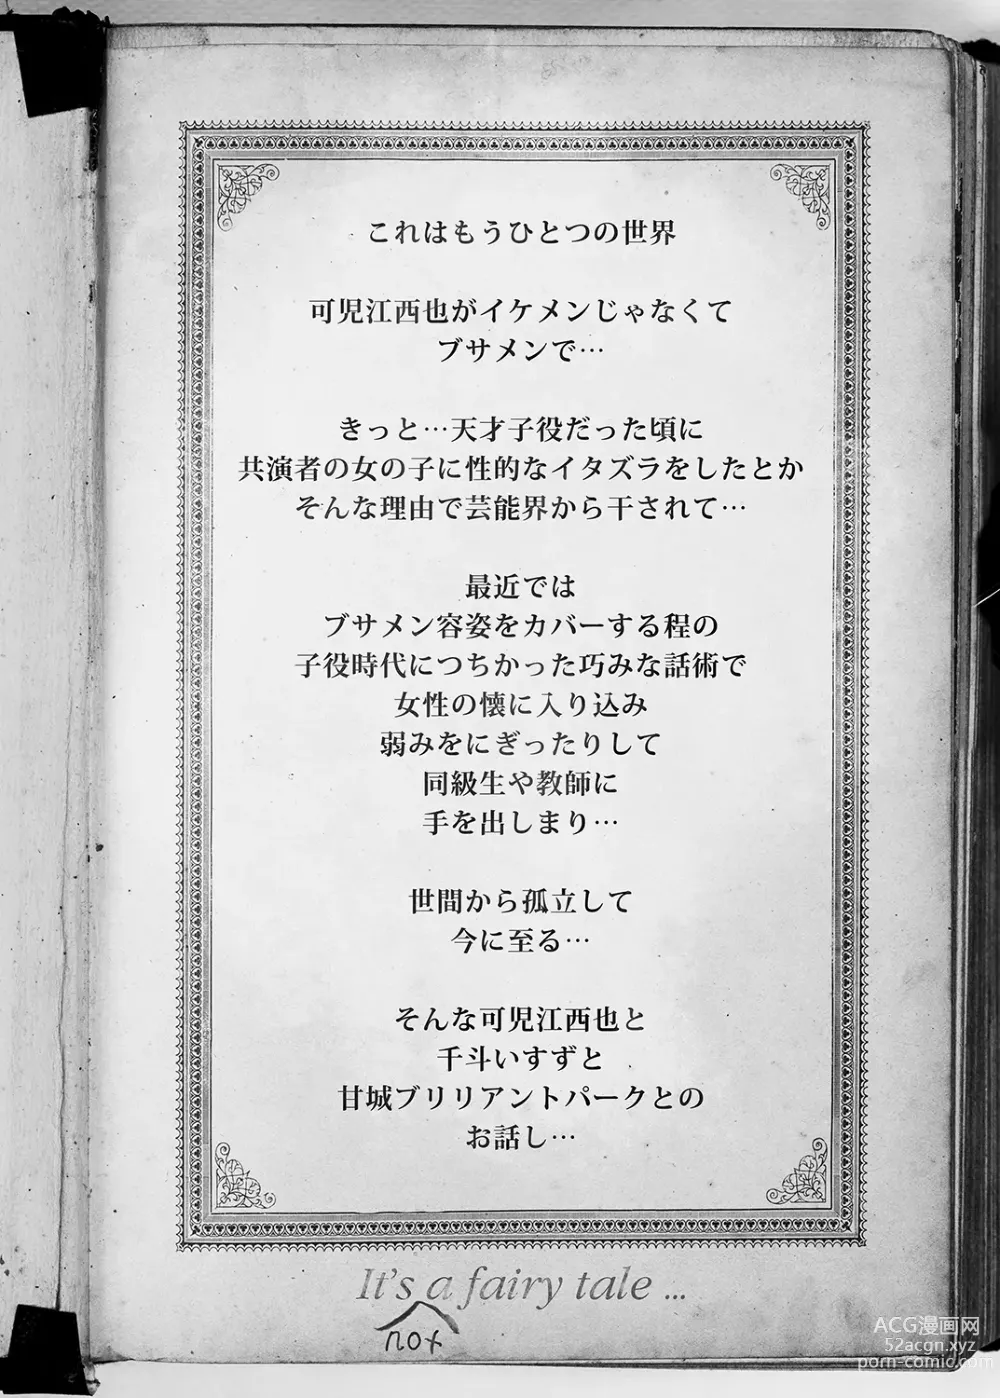 これはもうひとつの世界
可児江西也がイケメンじゃなくて
ブサメンで…
きっと…天才子役だった頃に
共演者の女の子に性的なイタズラをしたとか
そんな理由で芸能界から干されて…
最近では
ブサメン容姿をカバーする程の
子役時代につちかった巧みな話術で
女性の懐に入り込み
弱みをにぎったりして
同級生や教師に
手を出しまり…
世間から孤立して
今に至る…
そんな可児江西也と
千斗いすずと
甘城ブリリアントパークとの
お話し…
It's a fairy tale ...
not
ACG漫画网
52acgn.xyz
porn-comic.com